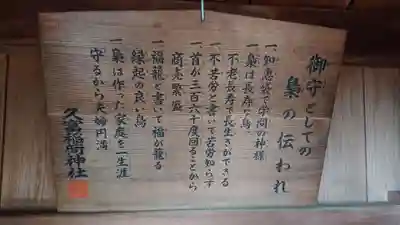 御守としての
梟の伝われ
一知恵袋で学問の神様
一梟は長寿な鳥
不老長寿で長生きができる
一不苦労と書いて苦労知らず
一首が三百六十度回ることから
商売繁盛
一福籠と書いて福が籠る
縁起の良い鳥
一梟は作った家庭を一生涯
守るから夫婦円満
稲荷神社